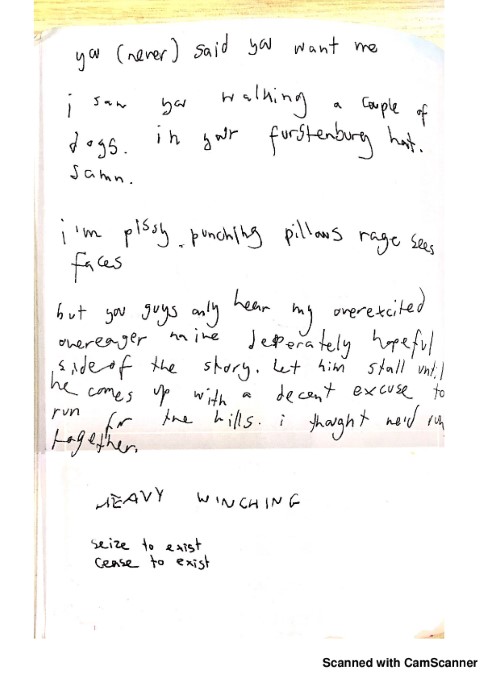 you (never) said you want me
i saw you walking a couple of
dogs. in your furstenburg hat.
damn.
i'm pissy. punching pillows rage sees
faces
but you guys only hear my overexcited
overeager naive desperately hopeful
side of the story. let him stall until
he comes up with a decent excuse to
run for the hills. i thought we'd run
together.
HEAVY WINCHING
seize to exist
cease to exist
Scanned with CamScanner